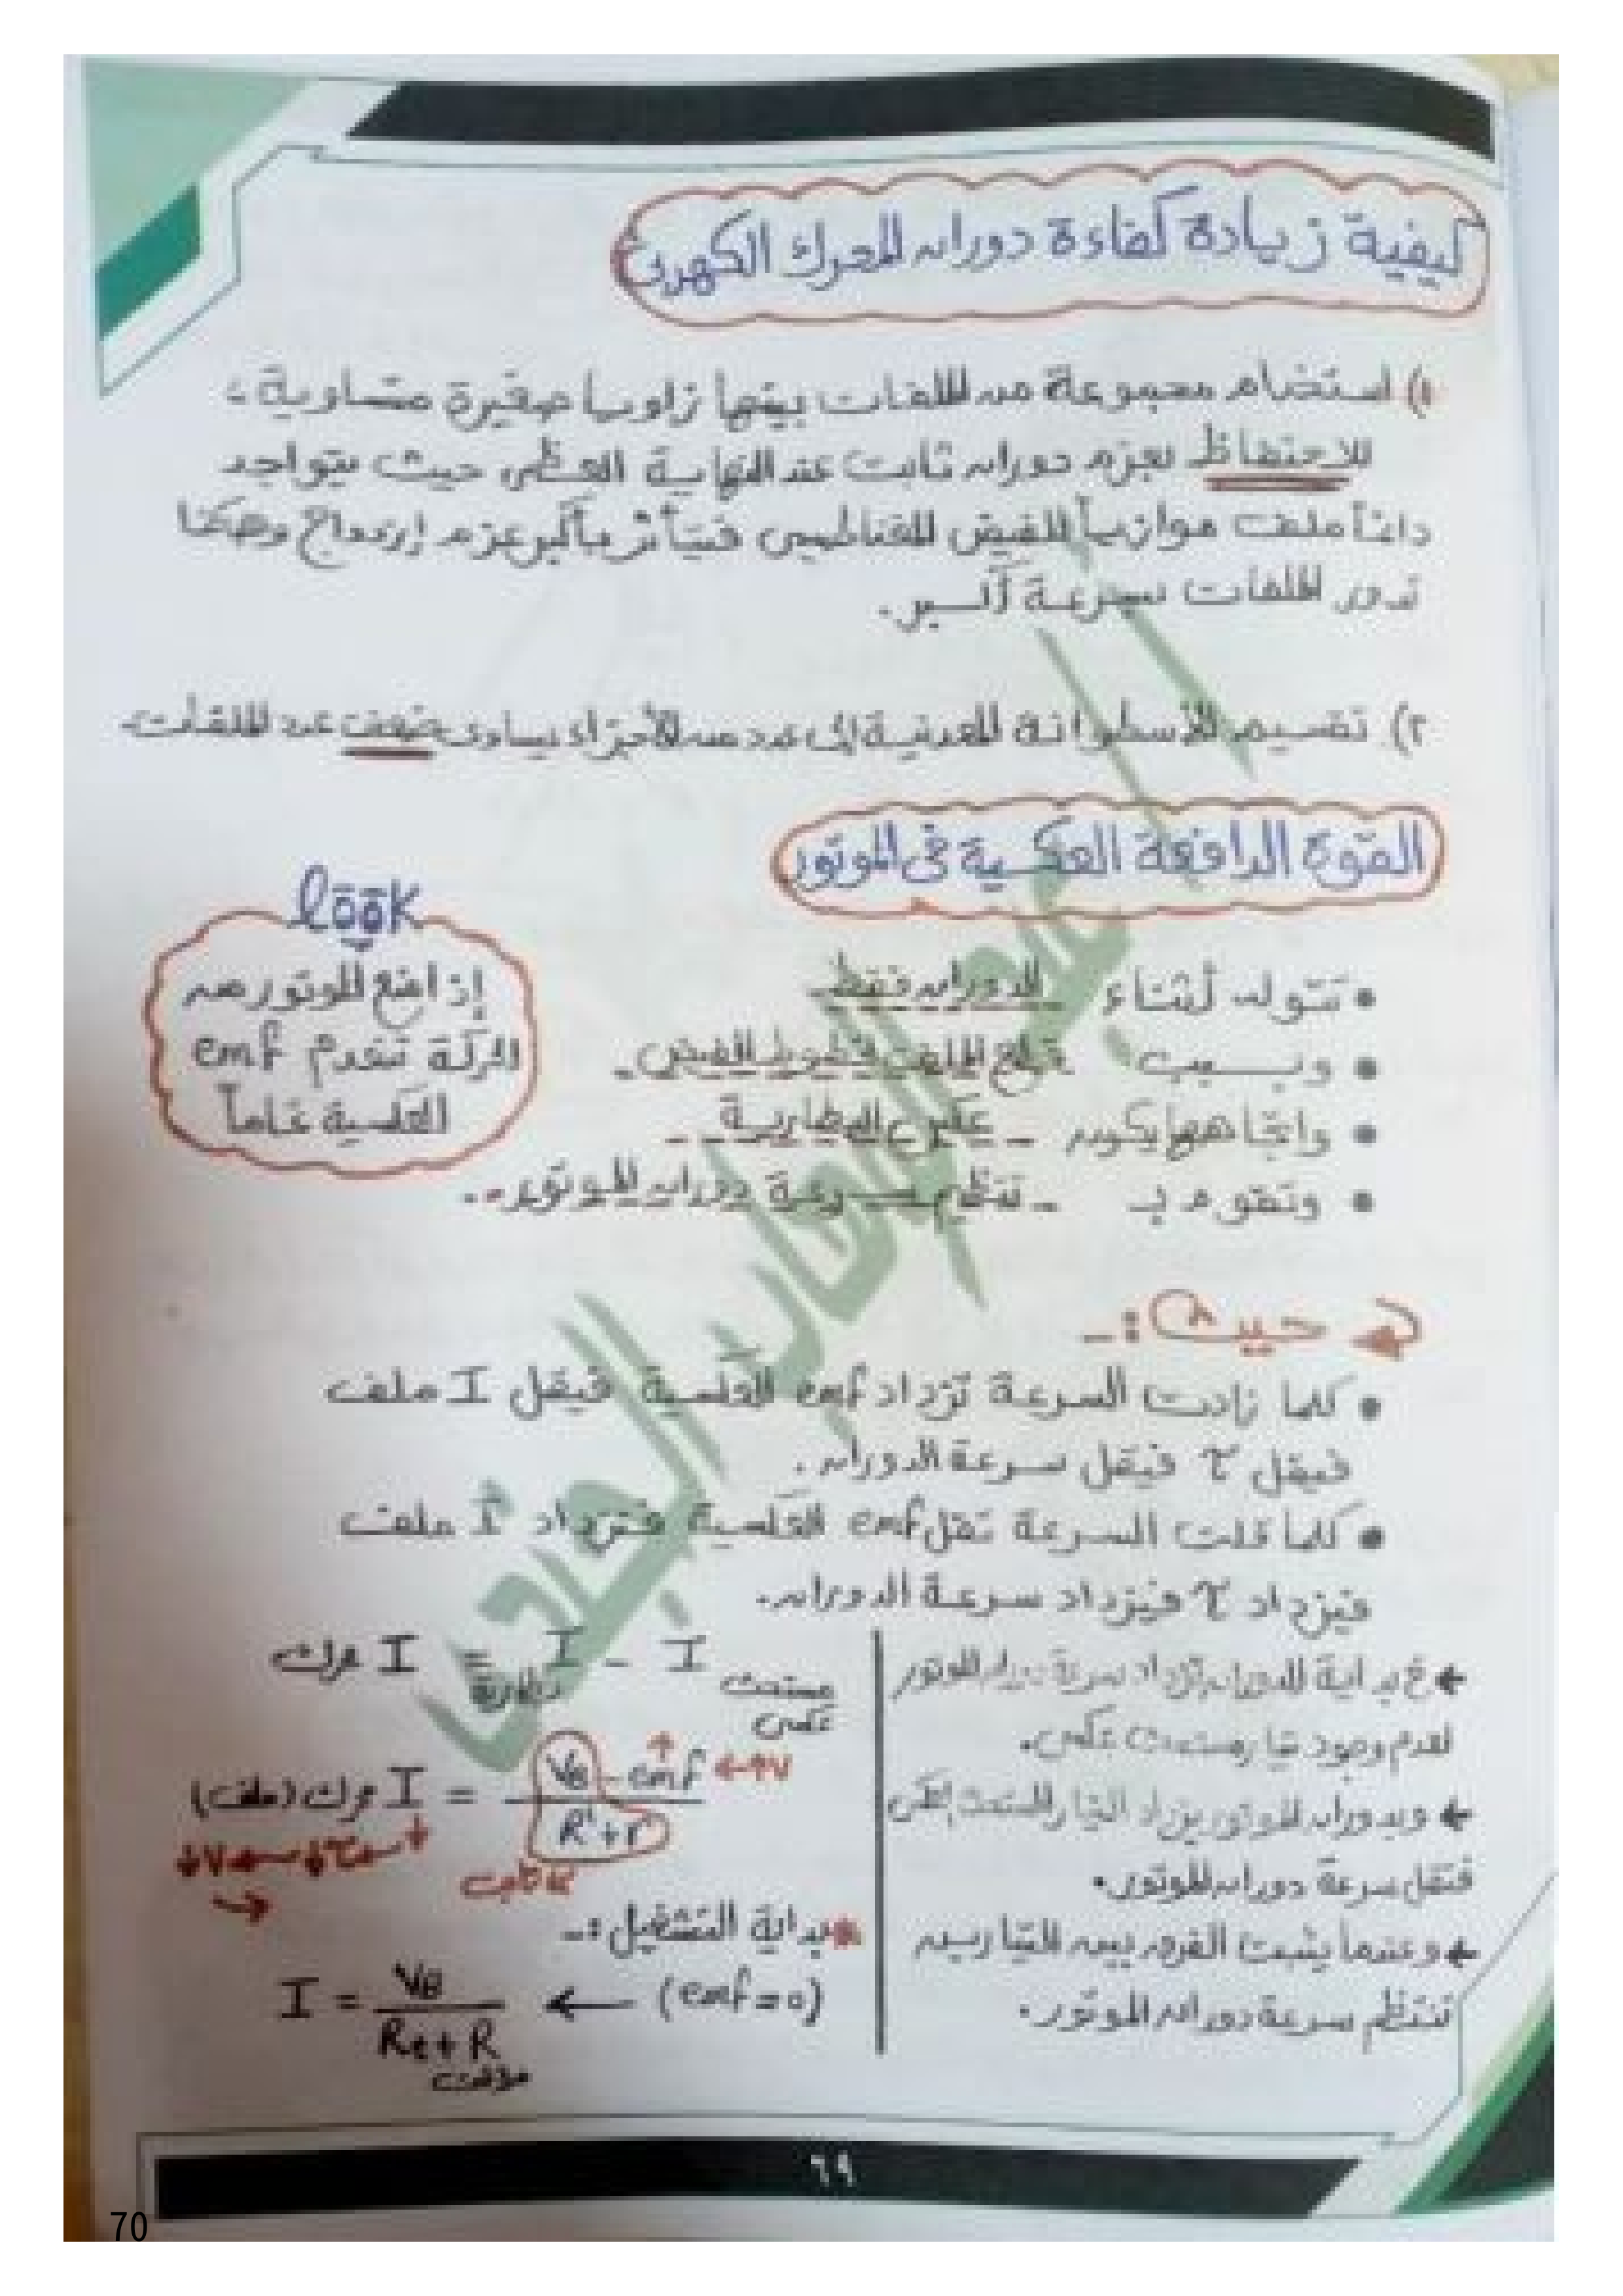 كيفية زيادة كفاءة دوران المحرك الكهربى
١) استخدام مجموعة من الملفات بينها زوايا صغيرة متساوية ؛
للاحتفاظ بعزم دوران ثابت عند النهاية العظمى حيث يتواجد
دائماً ملف موازياً للفيض المغناطيسى فيتأثر بأكبر عزم إزدواج وهكذا
تدور الملفات بسرعة أكبر .
٢) تقسيم الأسطوانة المعدنية إلى عدد من الأجزاء يساوى ضعف عدد الملفات
القوة الدافعة العكسية فى الموتور
look
إذا منع الموتور من
الحركة تنعدم emf
العكسية تماماً
• تتولد أثناء الدوران فقط
• وبسبب قطع الملف لخطوط الفيض
• واتجاهها يكون عكس البطارية
• وتقوم بـ تنظيم سرعة دوران الموتور
حيث :-
• كلما زادت السرعة تزداد emf العكسية فيقل I ملف
فيقل τ فيقل سرعة الدوران .
• كلما قلت السرعة تقل emf العكسية فتزداد I ملف
فيزداد τ فيزداد سرعة الدوران .
← فى بداية الدوران تزداد سرعة دوران الموتور
لعدم وجود تيار مستحث عكسى .
← وبدوران الموتور يزداد التيار المستحث العكسى
فتقل سرعة دوران الموتور .
← وعندما يثبت الفرق بين التيارين
تنتظم سرعة دوران الموتور .
I محرك = I بطارية - I مستحث عكسى
I محرك (ملف) = (VB - emf) / (R + r) ← ↑ V
↓ V ← ↓ τ ← ↓
ثابت
* بداية التشغيل :-
(emf = 0) ← I = VB / (Rt + R)
٦٩
70